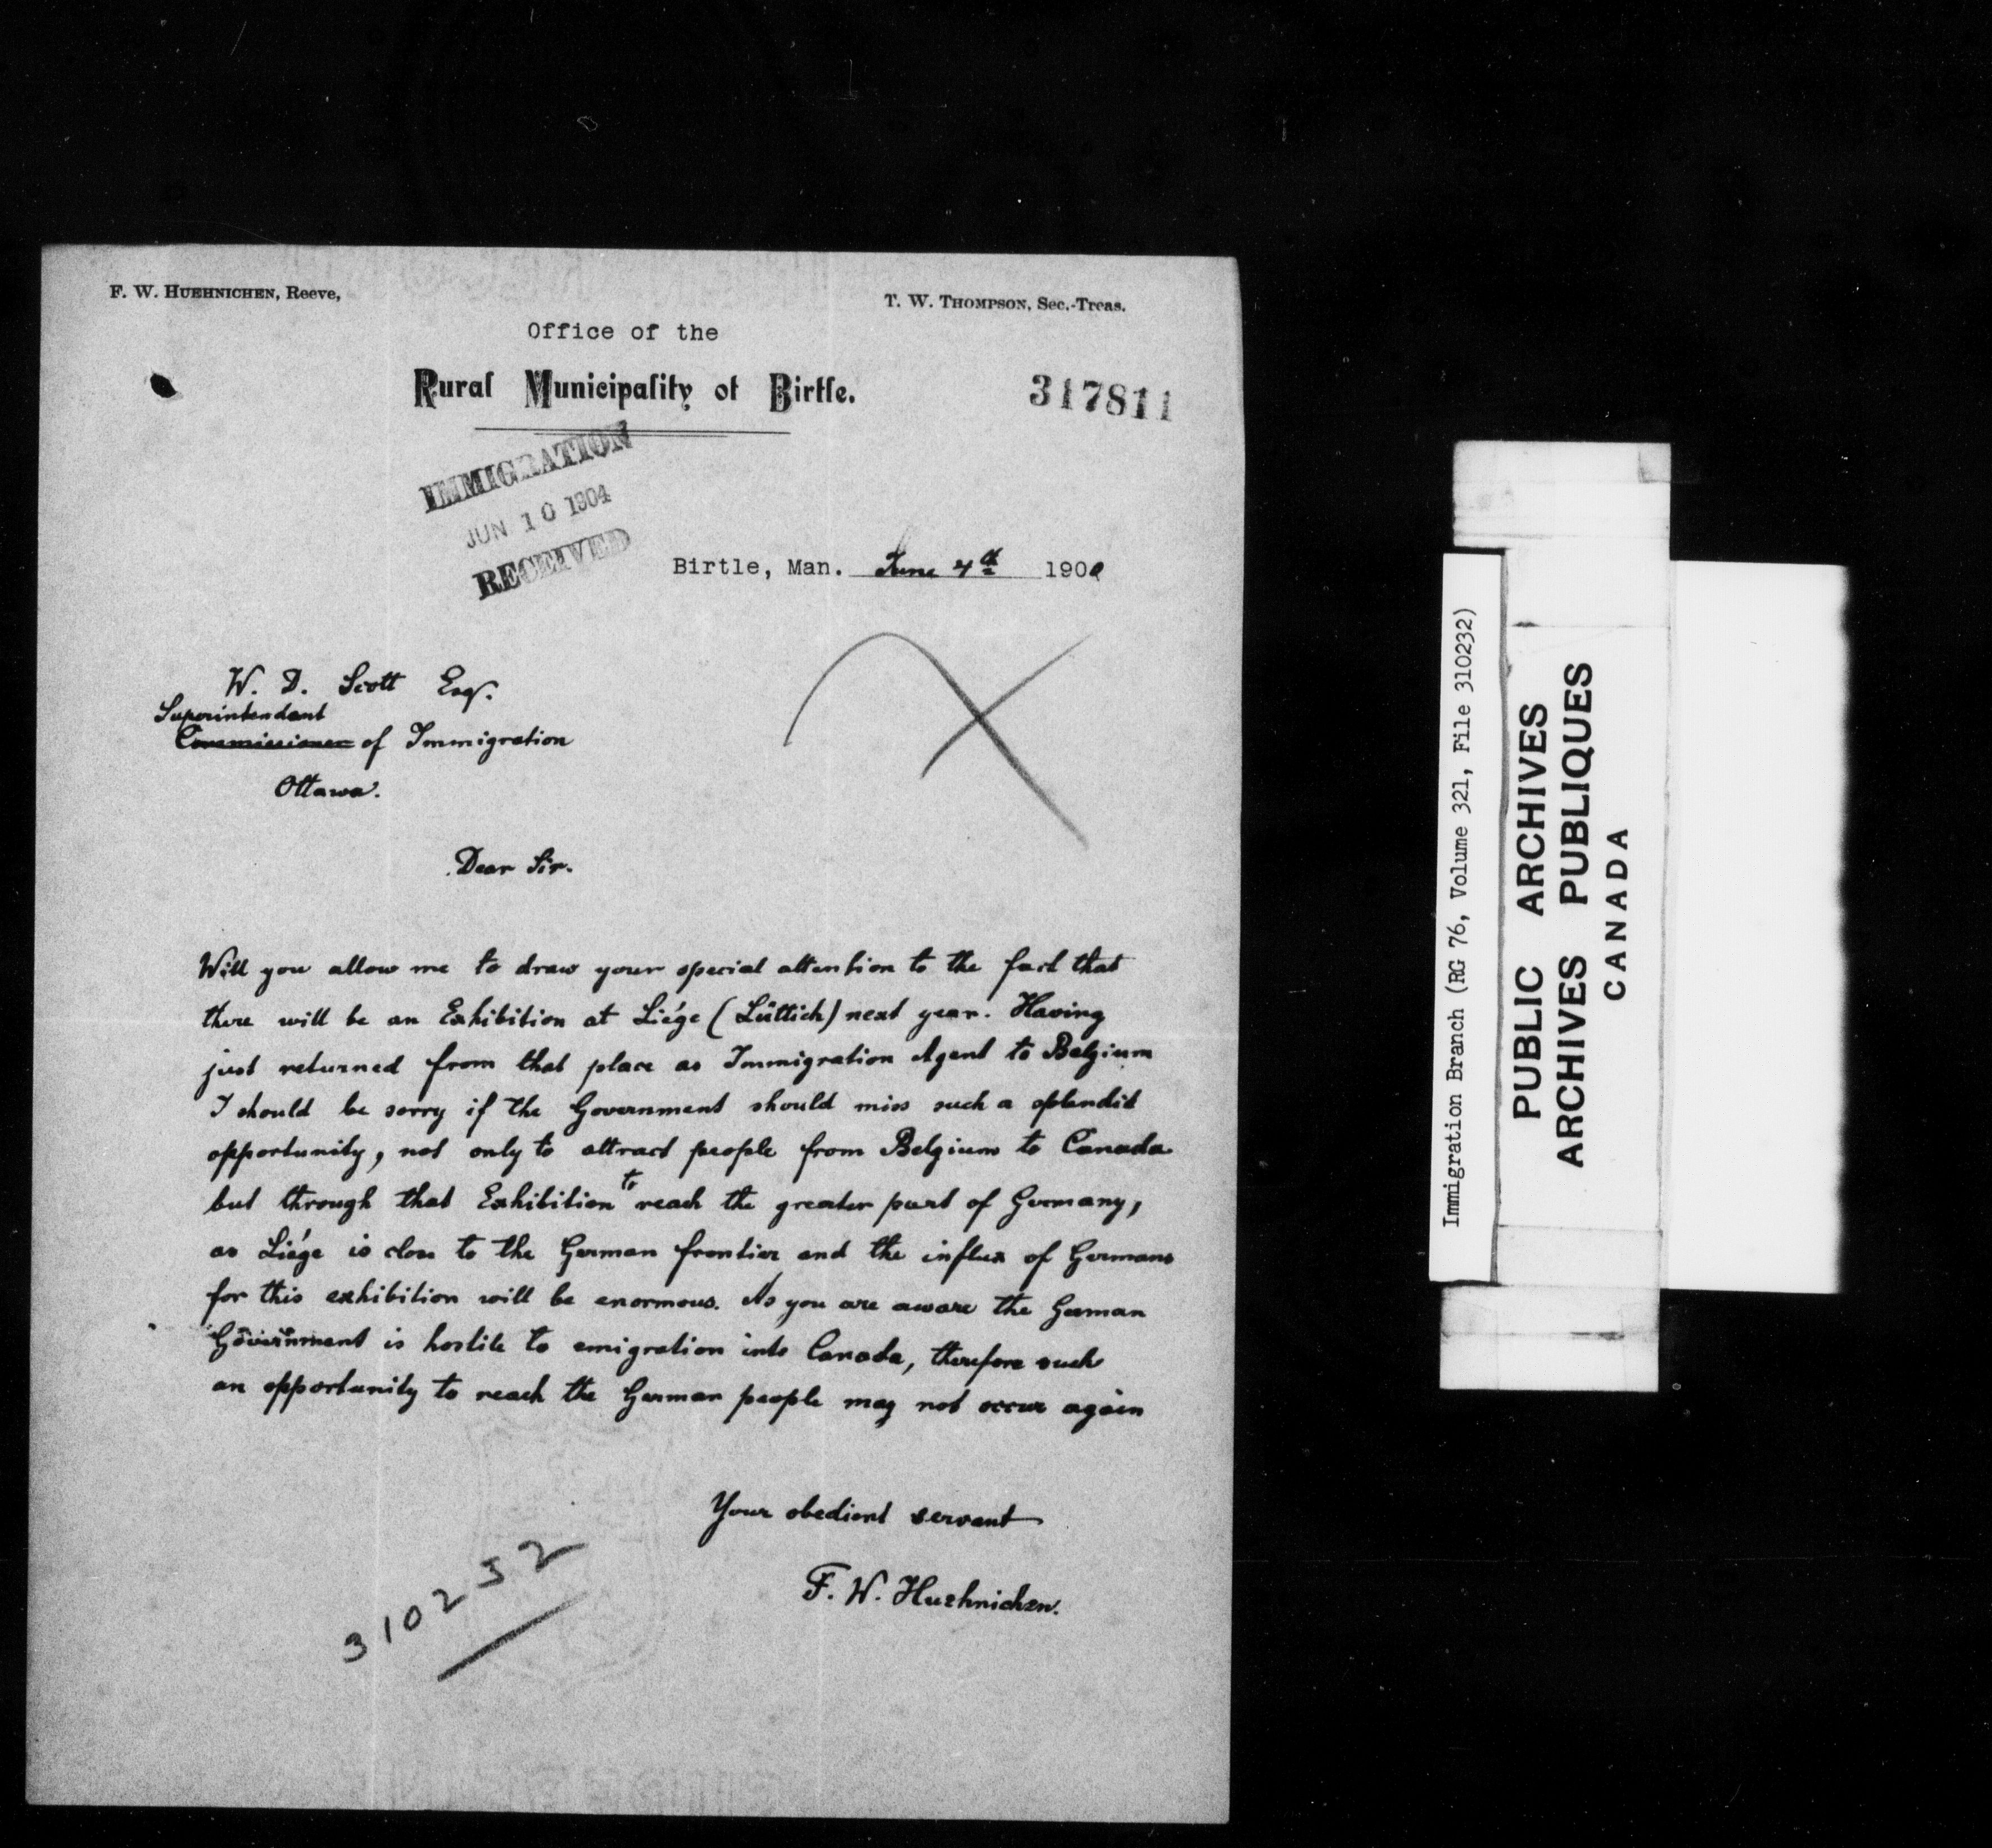 F. W. HUEHNICHEN, Reeve,
T. W. THOMPSON, Sec.-Treas.
Office of the
Rural Municipality of Birtle.
317811
IMMIGRATION
JUN 10 1904
RECEIVED
Birtle, Man. June 4th 190
W. D. Scott Esq.
Superintendant
Commissioner of Immigration
Ottawa.
Dear Sir.
Will you allow me to draw your special attention to the fact that
there will be an Exhibition at Liége (Lüttich) next year. Having
just returned from that place as Immigration Agent to Belgium
I should be sorry if the Government should miss such a splendid
opportunity, not only to attract people from Belgium to Canada
but through that Exhibition to reach the greater part of Germany,
as Liége is close to the German frontier and the influx of Germans
for this exhibition will be enormous. As you are aware the German
Government is hostile to emigration into Canada, therefore such
an opportunity to reach the German people may not occur again
Your obedient servant
F. W. Huehnichen.
310232
Immigration Branch (RG 76, Volume 321, File 310232)
PUBLIC ARCHIVES
ARCHIVES PUBLIQUES
CANADA